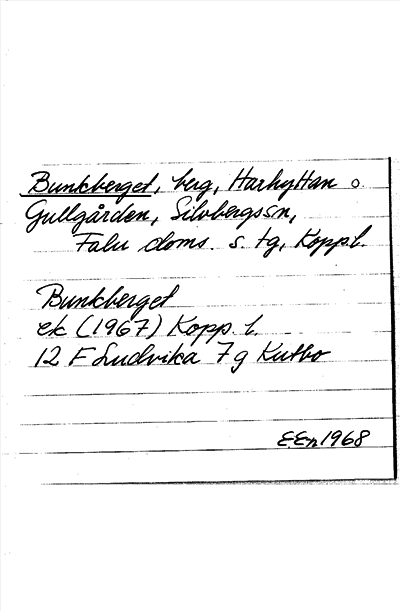 Bunkberget, berg, Harhyttan o
Gullgården, Silvbergs sn,
Falu doms. s. tg, Kopp.l.
Bunkberget
ek (1967) Kopp. l.
12 F Ludvika 7 g Kutbo
EEn 1968